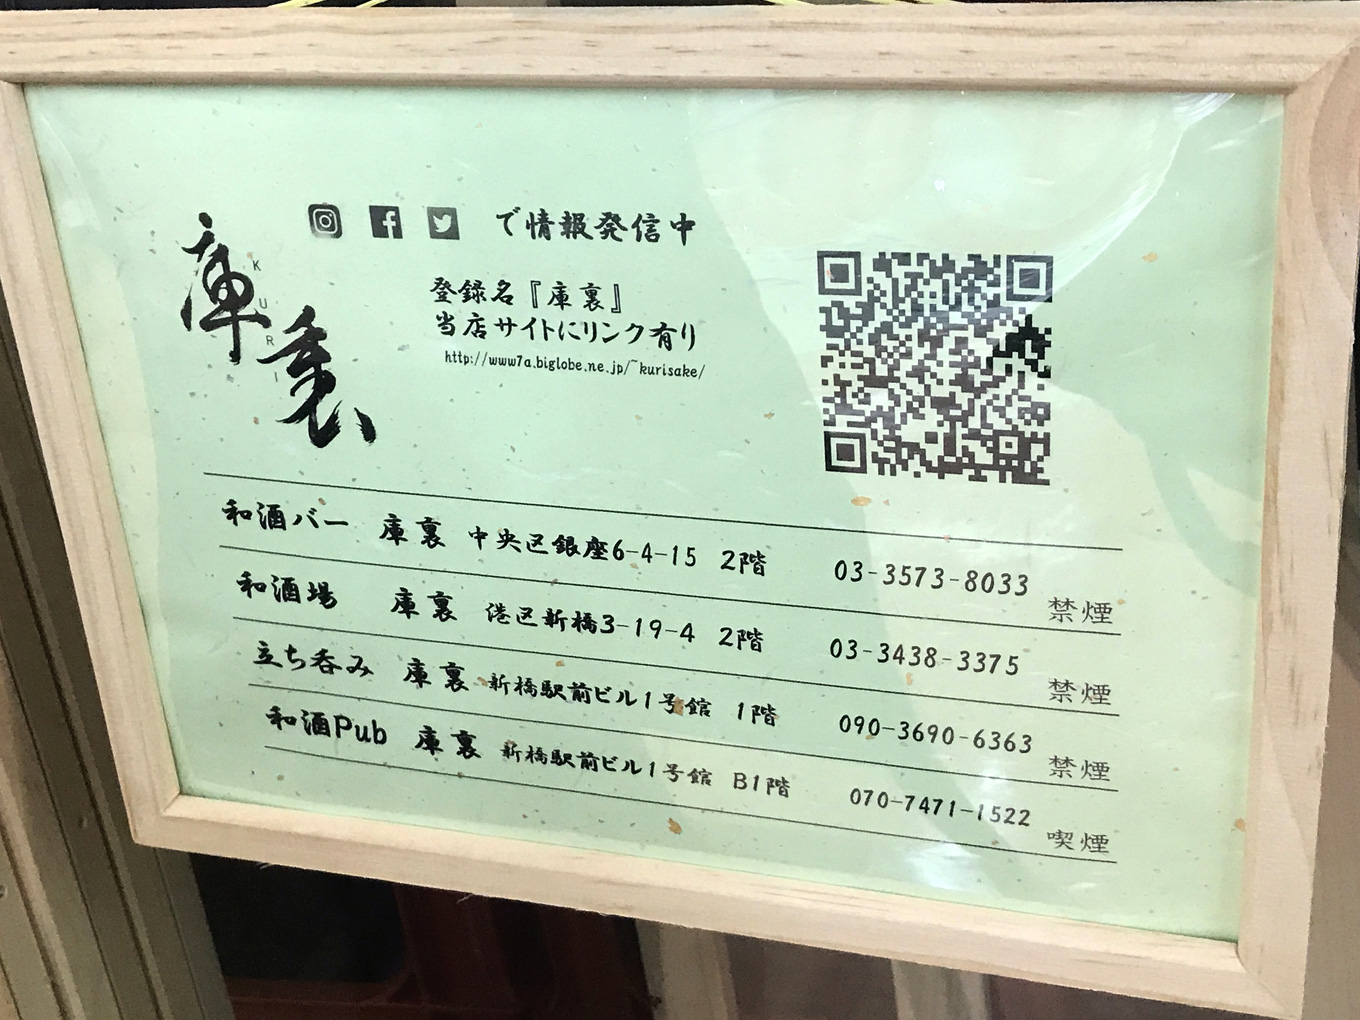 庫裏
KURI
で情報発信中
登録名『庫裏』
当店サイトにリンク有り
http://www7a.biglobe.ne.jp/~kurisake/
和酒バー 庫裏 中央区銀座6-4-15 2階 03-3573-8033 禁煙
和酒場 庫裏 港区新橋3-19-4 2階 03-3438-3375 禁煙
立ち呑み 庫裏 新橋駅前ビル1号館 1階 090-3690-6363 禁煙
和酒Pub 庫裏 新橋駅前ビル1号館 B1階 070-7471-1522 喫煙